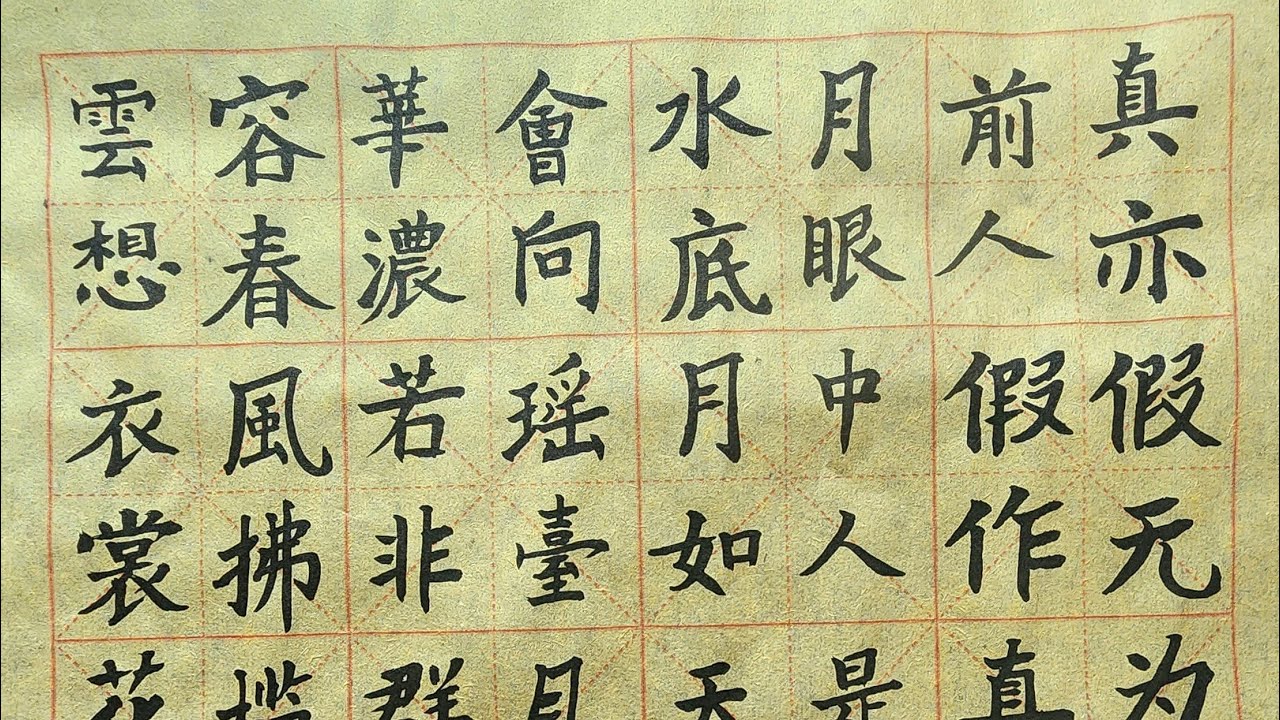 雲想衣裳花
容春風拂槛
華濃若非群
會向瑶臺月
水底月如天
月眼中人是
前人假作真
真亦假无为